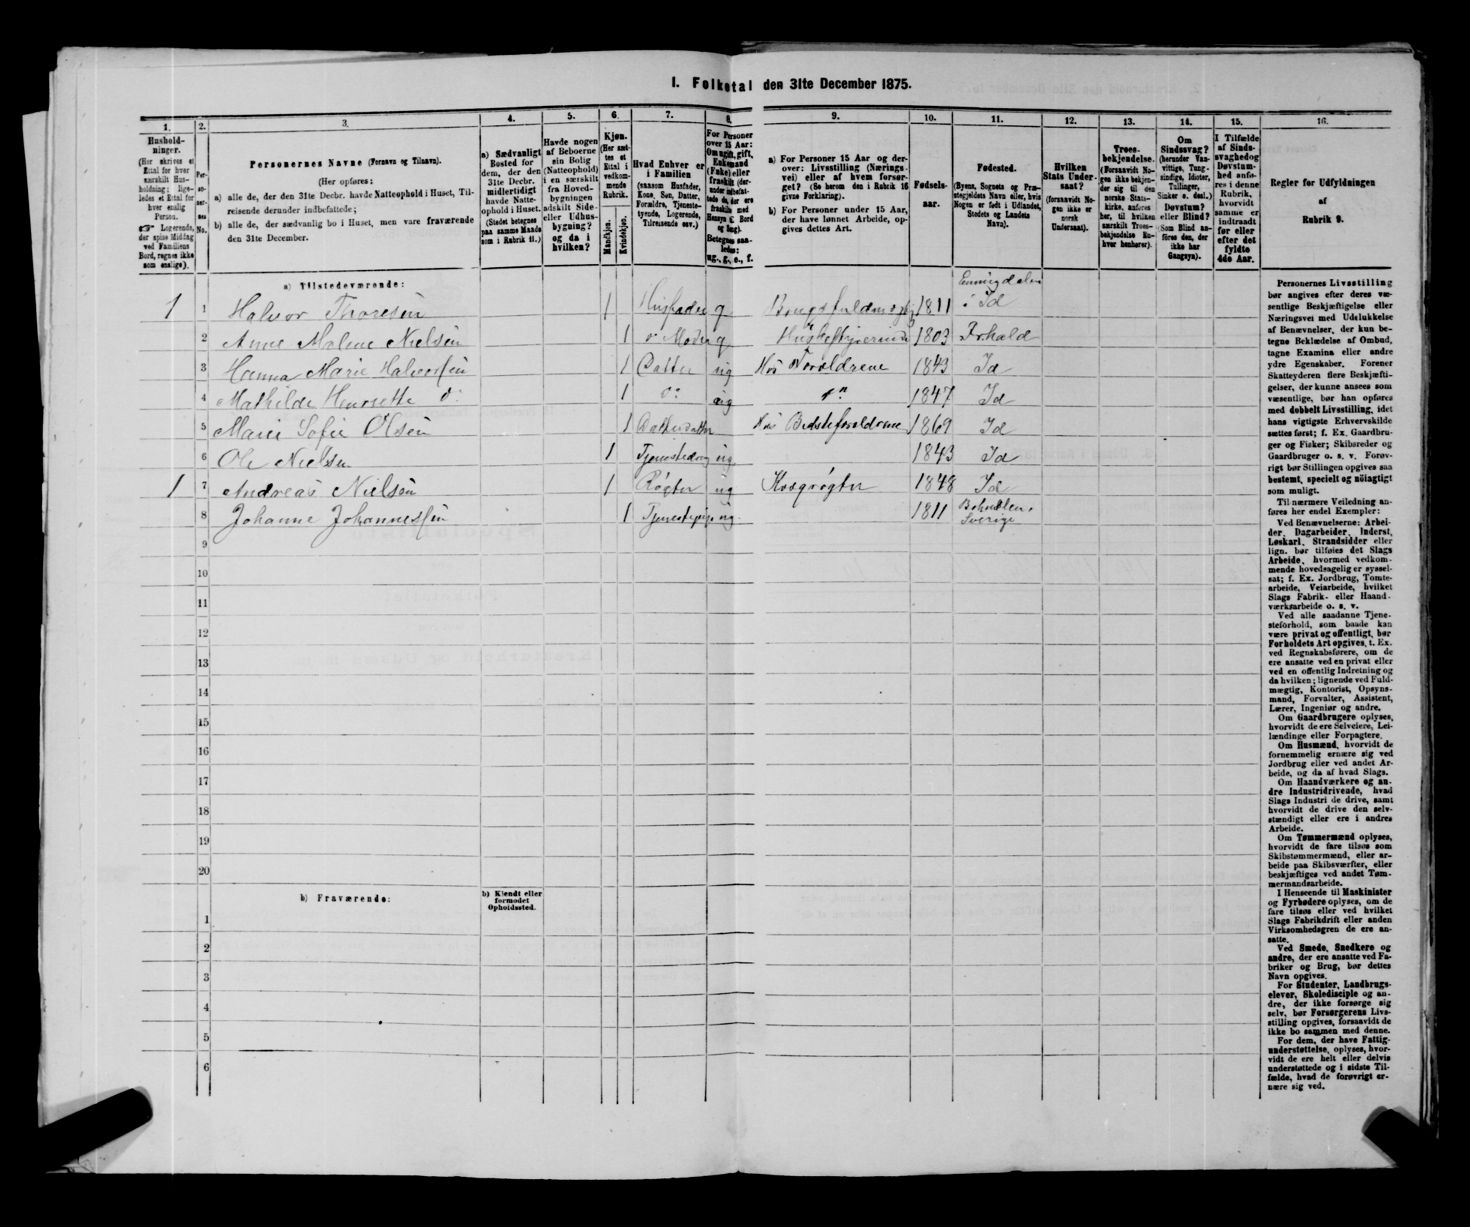 I. Folketal den 31te December 1875.
1.
Husholdninger.
(Her skrives et Ettal for hver særskilt Husholdning; ligeledes et Ettal for hver enslig Person.
☞ Logerende, der spise Middag ved Familiens Bord, regnes ikke som enslige).
2.
Personernes No.
3.
Personernes Navne (Fornavn og Tilnavn).
(Her opføres:
a) alle de, der den 31te Decbr. havde Natteophold i Huset, Tilreisende derunder indbefattede;
b) alle de, der sædvanlig bo i Huset, men vare fraværende den 31te December.
4.
a) Sædvanligt Bosted for dem, der den 31te Decbr. midlertidigt havde Natteophold i Huset.
(Stedet betegnes paa samme Maade som i Rubrik 11.)
5.
Havde nogen af Beboerne sin Bolig (Natteophold) i en særskilt fra Hovedbygningen adskilt Side- eller Udhusbygning? og da i hvilken?
6.
Kjøn.
(Her sættes et Ettal i vedkommende Rubrik.
Mandkjøn.
Kvindekjøn.
7.
Hvad Enhver er i Familien
(saasom Husfader, Kone, Søn, Datter, Forældre, Tjenestetyende, Logerende, Tilreisende osv.)
8.
For Personer over 15 Aar: Om ugift, gift, Enkemand (Enke) eller fraskilt
Betegnes saaledes: ug., g., e., f.
9.
a) For Personer 15 Aar og derover: Livsstilling (Næringsvei) eller af hvem forsørget? (Se herom den i Rubrik 16 givne Forklaring).
b) For Personer under 15 Aar, der have lønnet Arbeide, opgives dettes Art.
10.
Fødselsaar.
11.
Fødested.
(Byens, Sognets og Præstegjeldets Navn eller, hvis Nogen er født i Udlandet, Stedets og Landets Navn).
12.
Hvilken Stats Undersaat?
(forsaavidt Nogen ikke er norsk Undersaat).
13.
Troesbekjendelse.
(Forsaavidt Nogen ikke bekjender sig til den norske Statskirke, anføres her, til hvilken særskilt Troesbekjendelse Enhver henhører).
14.
Om Sindssvag? (herunder Vanvittige, Tungsindige, Idioter, Tullinger, Sinker o. desl.) Døvstum? eller Blind?
(Som Blind anføres den, der ikke har Gangsyn).
15.
I Tilfælde af Sindssvaghed og Døvstumhed anføres i denne Rubrik, hvorvidt samme er indtraadt før eller efter det fyldte 4de Aar.
16.
Regler for Udfyldningen af Rubrik 9.
a) Tilstedeværende:
1 1 Halvor Thoresen 1 Husfader g 1811 Enningdalen i Id
2 Anne Malene Nielsen 1 Moder g 1803 Frhald
3 Hanna Marie Halvorsen 1 Datter ug Hos Forældrene 1843 Id
4 Mathilde Henriette do 1 do ug 1847 Id
5 Marie Sofie Olsen 1 Datterdatter Hos Bedsteforældrene 1869 Id
6 Ole Nielsen 1 Tjenestedreng ug. 1843 Id
1 7 Andreas Nielsen 1 Røgter ug Kreagrøgter 1848 Id
8 Johanne Johannessen 1 Tjenestepige ug. 1811 Bohuslen, Sverige
9
10
11
12
13
14
15
16
17
18
19
20
b) Fraværende:
b) Kjendt eller formodet Opholdssted.
1
2
3
4
5
6
Personernes Livsstilling
bør angives efter deres væ-
sentlige Beskjæftigelse eller
Næringsvei med Udelukkelse
af Benævnelser, der kun be-
tegne Beklædelse af Ombud,
tagne Examina eller andre
ydre Egenskaber. Forener
Skatteyderen flere Beskjæfti-
gelser, der kunne ansees som
væsentlige, bør han opføres
med dobbelt Livsstilling, idet
hans vigtigste Erhvervskilde
sættes først; f. Ex. Gaardbru-
ger og Fisker; Skibsreder og
Gaardbruger o. s. v. Forøv-
rigt bør Stillingen opgives saa
bestemt, specielt og nøiagtigt
som muligt.
Til nærmere Veiledning an-
føres her endel Exempler:
Ved Benævnelserne: Arbei-
der, Dagarbeider, Inderst,
Løskarl, Strandsidder eller
lign. bør tilføies det Slags
Arbeide, hvormed vedkom-
mende hovedsagelig er syssel-
sat; f. Ex. Jordbrug, Tomte-
arbeide, Veiarbeide, hvilket
Slags Fabrik- eller Haand-
værksarbeide o. s. v.
Ved alle saadanne Tjene-
steforhold, som baade kan
være privat og offentligt, bør
Forholdets Art opgives, t. Ex.
ved Regnskabsførere, om de
ere ansatte ved en privat eller
ved en offentlig Indretning og
da hvilken; lignende ved Fuld-
mægtig, Kontorist, Opsyns-
mand, Forvalter, Assistent,
Lærer, Ingeniør og andre.
Om Gaardbrugere oplyses,
hvorvidt de ere Selveiere, Lei-
lændinge eller Forpagtere.
Om Husmænd, hvorvidt de
fornemmelig ernære sig ved
Jordbrug eller ved andet Ar-
beide, og da af hvad Slags.
Om Haandværkere og an-
dre Industridrivende, hvad
Slags Industri de drive, samt
hvorvidt de drive den selv-
stændigt eller ere i andres
Arbeide.
Om Tømmermænd oplyses,
hvorvidt de fare tilsøs som
Skibstømmermænd, eller ar-
beide paa Skibsværfter, eller
beskjæftiges ved andet Tøm-
mermandsarbeide.
I Henseende til Maskinister
og Fyrbødere oplyses, om de
fare tilsøs eller ved hvilket
Slags Fabrikdrift eller anden
Virksomhedsgren de ere an-
satte.
Ved Smede, Snedkere og
andre, der ere ansatte ved Fa-
briker og Brug, bør dettes
Navn opgives.
For Studenter, Landbrugs-
elever, Skoledisciple og an-
dre, der ikke forsørge sig
selv, bør Forsørgerens Livs-
stilling opgives, forsaavidt de
ikke bo sammen med denne.
For dem, der have Fattig-
understøttelse, oplyses, hvor-
vidt de ere helt eller delvis
understøttede og i sidste Til-
fælde, hvad de forøvrigt er-
nære sig ved.